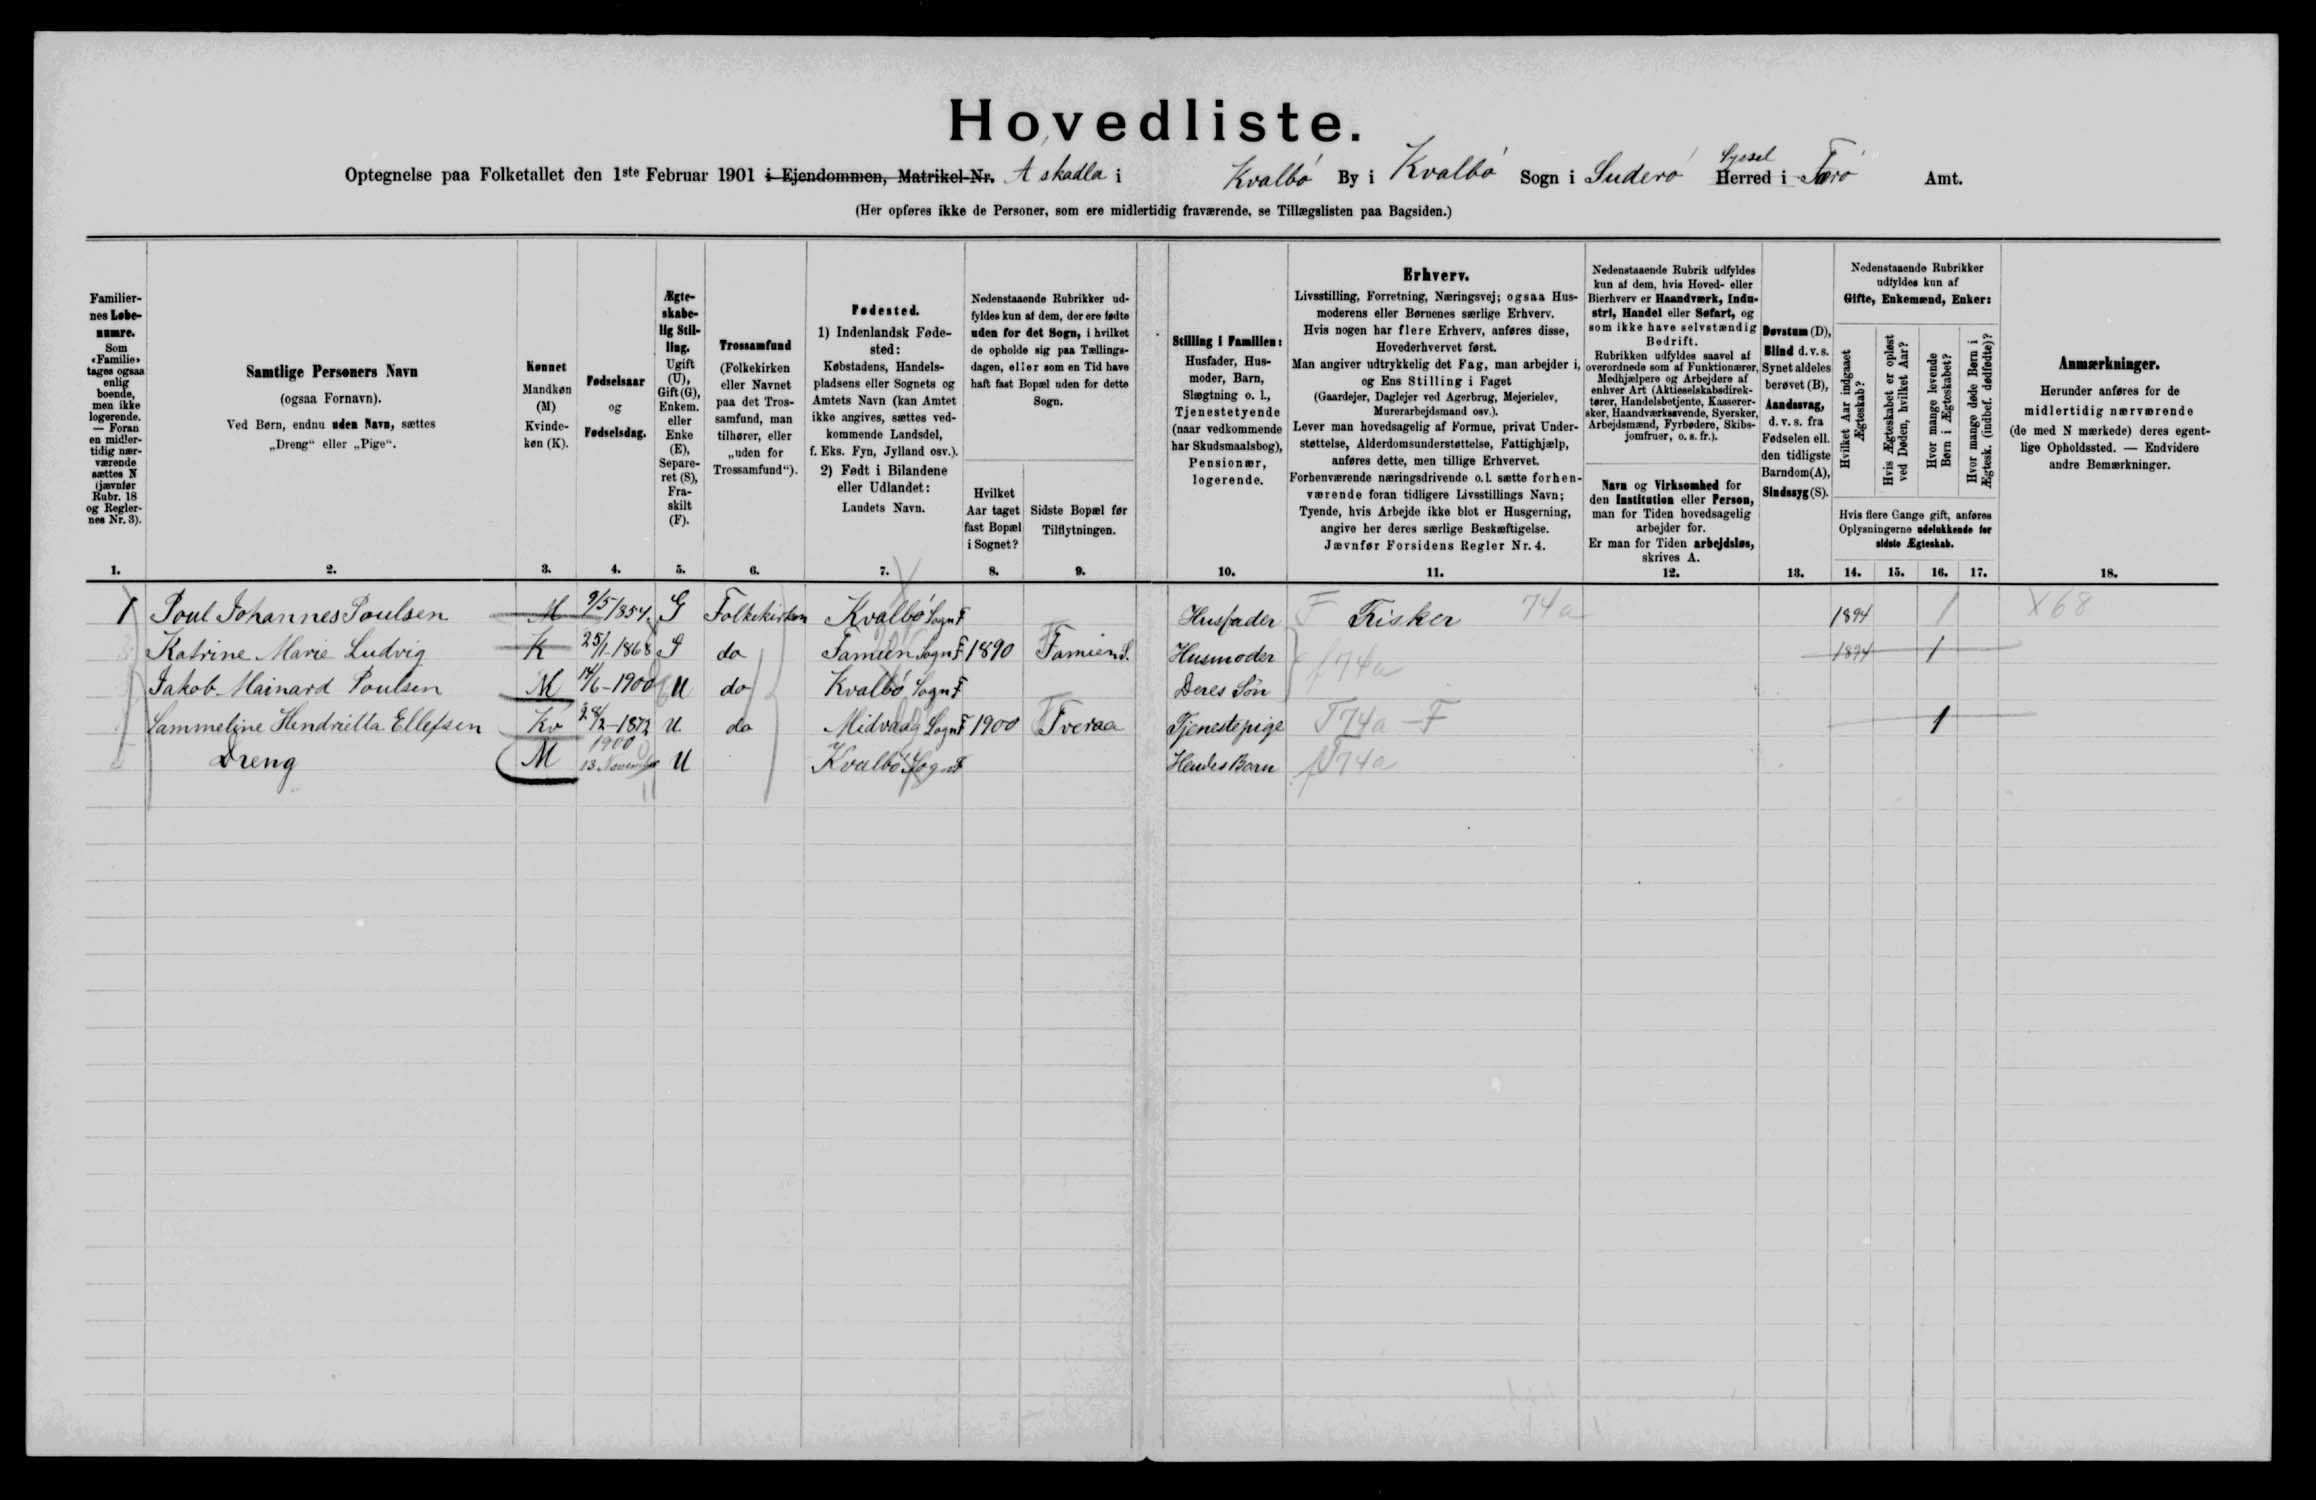 Hovedliste.
Optegnelse paa Folketallet den 1ste Februar 1901 i Ejendommen, Matrikel-Nr. A skadla i Kvalbö By i Kvalbö Sogn i Suderö Syssel Herred i Færö Amt.
(Her opføres ikke de Personer, som ere midlertidig fraværende, se Tillægslisten paa Bagsiden.)
Familiernes Løbenumre.
Som «Familie» tages ogsaa enlig boende, men ikke logerende. — Foran en midlertidig nærværende sættes N (jævnfør Rubr. 18 og Reglernes Nr. 3).
Samtlige Personers Navn
(ogsaa Fornavn).
Ved Børn, endnu uden Navn, sættes
„Dreng“ eller „Pige“.
Kønnet
Mandkøn (M)
Kvindekøn (K).
Fødselsaar
og
Fødselsdag.
Ægteskabelig Stilling.
Ugift (U), Gift (G), Enkem. eller Enke (E), Separeret (S), Fraskilt (F).
Trossamfund
(Folkekirken eller Navnet paa det Trossamfund, man tilhører, eller „uden for Trossamfund“).
Fødested.
1) Indenlandsk Fødested:
Købstadens, Handelspladsens eller Sognets og Amtets Navn (kan Amtet ikke angives, sættes vedkommende Landsdel, f. Eks. Fyn, Jylland osv.).
2) Født i Bilandene eller Udlandet:
Landets Navn.
Nedenstaaende Rubrikker udfyldes kun af dem, der ere fødte uden for det Sogn, i hvilket de opholde sig paa Tællingsdagen, eller som en Tid have haft fast Bopæl uden for dette Sogn.
Hvilket Aar taget fast Bopæl i Sognet?
Sidste Bopæl før Tilflytningen.
Stilling i Familien:
Husfader, Husmoder, Barn, Slægtning o. l., Tjenestetyende (naar vedkommende har Skudsmaalsbog), Pensionær, logerende.
Erhverv.
Livsstilling, Forretning, Næringsvej; ogsaa Husmoderens eller Børnenes særlige Erhverv.
Hvis nogen har flere Erhverv, anføres disse, Hovederhvervet først.
Man angiver udtrykkelig det Fag, man arbejder i, og Ens Stilling i Faget
(Gaardejer, Daglejer ved Agerbrug, Mejerielev, Murerarbejdsmand osv.).
Lever man hovedsagelig af Formue, privat Understøttelse, Alderdomsunderstøttelse, Fattighjælp, anføres dette, men tillige Erhvervet.
Forhenværende næringsdrivende o. l. sætte forhenværende foran tidligere Livsstillings Navn;
Tyende, hvis Arbejde ikke blot er Husgerning, angive her deres særlige Beskæftigelse.
Jævnfør Forsidens Regler Nr. 4.
Nedenstaaende Rubrik udfyldes kun af dem, hvis Hoved- eller Bierhverv er Haandværk, Industri, Handel eller Søfart, og som ikke have selvstændig Bedrift.
Rubrikken udfyldes saavel af overordnede som af Funktionærer, Medhjælpere og Arbejdere af enhver Art (Aktieselskabsdirektører, Handelsbetjente, Kasserersker, Haandværkssvende, Syersker, Arbejdsmænd, Fyrbødere, Skibsjomfruer, o. s. fr.).
Navn og Virksomhed for den Institution eller Person, man for Tiden hovedsagelig arbejder for.
Er man for Tiden arbejdsløs, skrives A.
Døvstum (D), Blind d. v. s. Synet aldeles berøvet (B), Aandssvag, d. v. s. fra Fødselen ell. den tidligste Barndom (A), Sindssyg (S).
Nedenstaaende Rubrikker udfyldes kun af
Gifte, Enkemænd, Enker:
Hvilket Aar indgaaet Ægteskab?
Hvis Ægteskabet er opløst ved Døden, hvilket Aar?
Hvor mange levende Børn i Ægteskabet?
Hvor mange døde Børn i Ægtesk. (indbef. dødfødte)?
Hvis flere Gange gift, anføres Oplysningerne udelukkende for sidste Ægteskab.
Anmærkninger.
Herunder anføres for de midlertidig nærværende (de med N mærkede) deres egentlige Opholdssted. — Endvidere andre Bemærkninger.
1. 2. 3. 4. 5. 6. 7. 8. 9. 10. 11. 12. 13. 14. 15. 16. 17. 18.
1 Poul Johannes Poulsen M 9/5 1854 G Folkekirken Kvalbö Sogn F Husfader F Fisker 74a 1894 1 X 68
Katrine Marie Ludvig K 25/1-1868 Famien Sogn F 1890 Famien S. Husmoder f 74a 1894 1
Jakob Mainard Poulsen M 14/6-1900 U do Kvalbö Sogn F Deres Sön
Sammeline Hendrietta Ellefsen Kv 28/2-1872 U do Midvaag Sogn F 1900 Tveraa Tjenestepige T 74a - F 1
Dreng M 1900 13 November U Kvalbö Sogn F Hendes Barn 74a